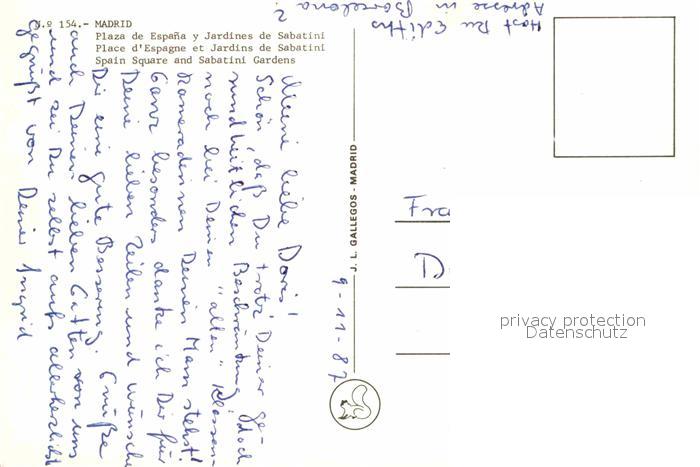 N.º 154.- MADRID
Plaza de España y Jardines de Sabatini
Place d'Espagne et Jardins de Sabatini
Spain Square and Sabatini Gardens
Hast Du Ediths
Adresse in Barcelona?
9-11-87
Meine liebe Doris!
Schön, daß Du trotz Deiner ge-
sundheitlichen Beschränkung doch
noch bei Deinen "alten" Klassen-
kameradinnen Deinen Mann stehst!
Ganz besonders danke ich Dir für
Deine lieben Zeilen und wünsche
Dir eine gute Besserung. Grüße
auch Deinen lieben Gatten von uns
und sei Du selbst aufs allerherzlichst
gegrüßt von Deiner Ingrid
J. L. GALLEGOS - MADRID
Fra
D
privacy protection
Datenschutz